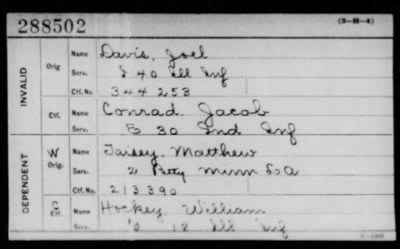 288502 (3-H-4)
INVALID
Orig. Name Davis, Joel
Serv. I 40 Ill Inf
Ctf. No. 344253
Ctf. Name Conrad Jacob
Serv. E 30 Ind Inf
DEPENDENT
W Orig. Name Taisey, Matthew
Serv. 2 Batty Minn L A
Ctf. No. 213390
C Ctf. Name William
Serv. 18 Ill Inf